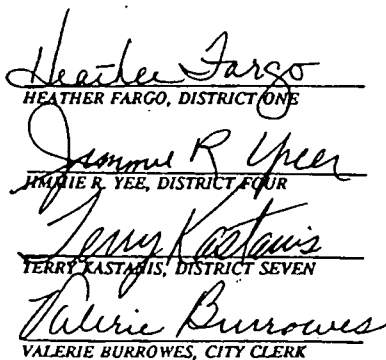 Heather Fargo
HEATHER FARGO, DISTRICT ONE
Jimmie R Yee
JIMMIE R. YEE, DISTRICT FOUR
Terry Kastanis
TERRY KASTANIS, DISTRICT SEVEN
Valerie Burrowes
VALERIE BURROWES, CITY CLERK